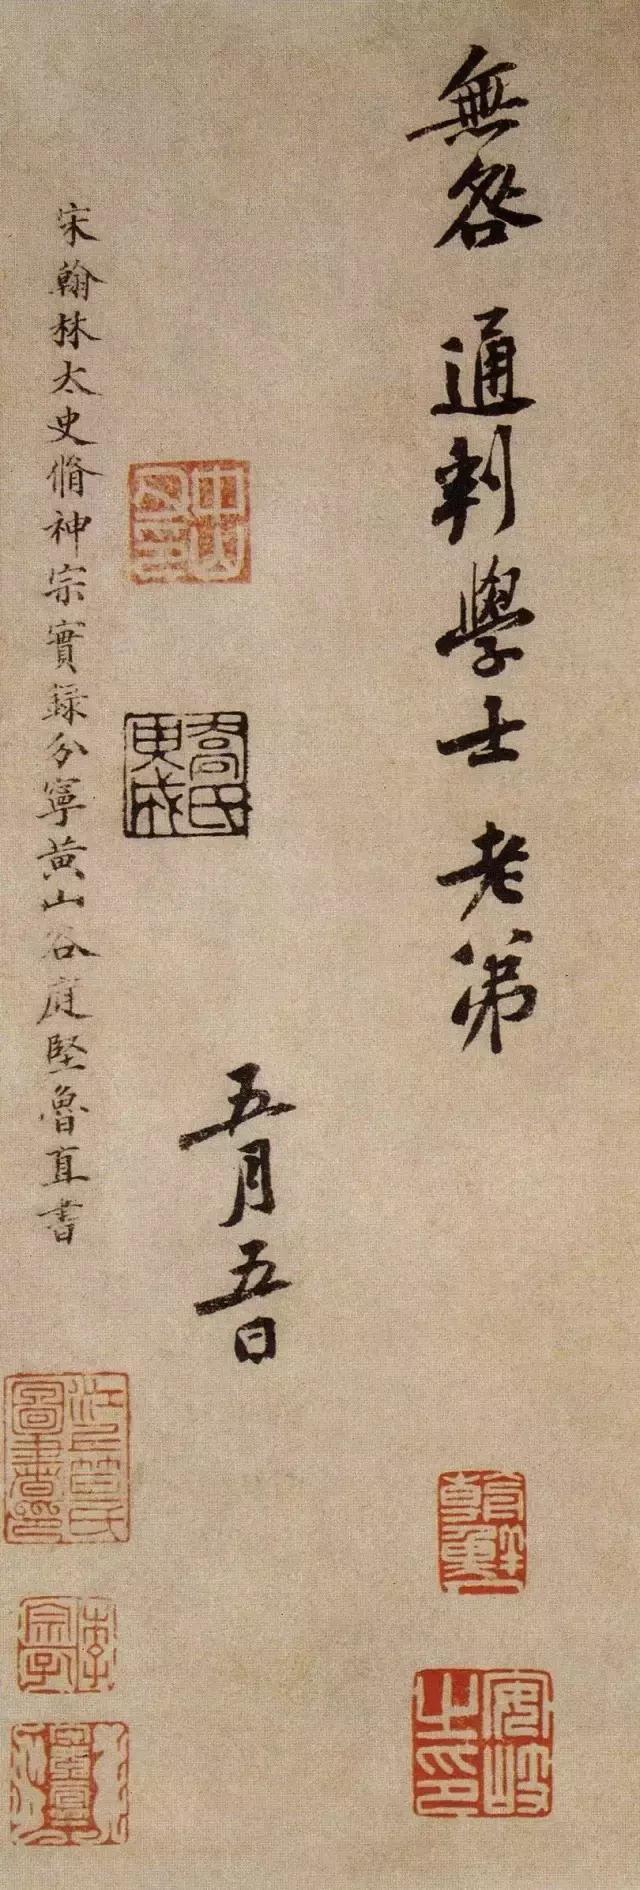 無咎 通判學士 老弟
五月五日
宋翰林太史脩神宗實録分寧黄山谷庭堅魯直書
喬氏
安岐之印